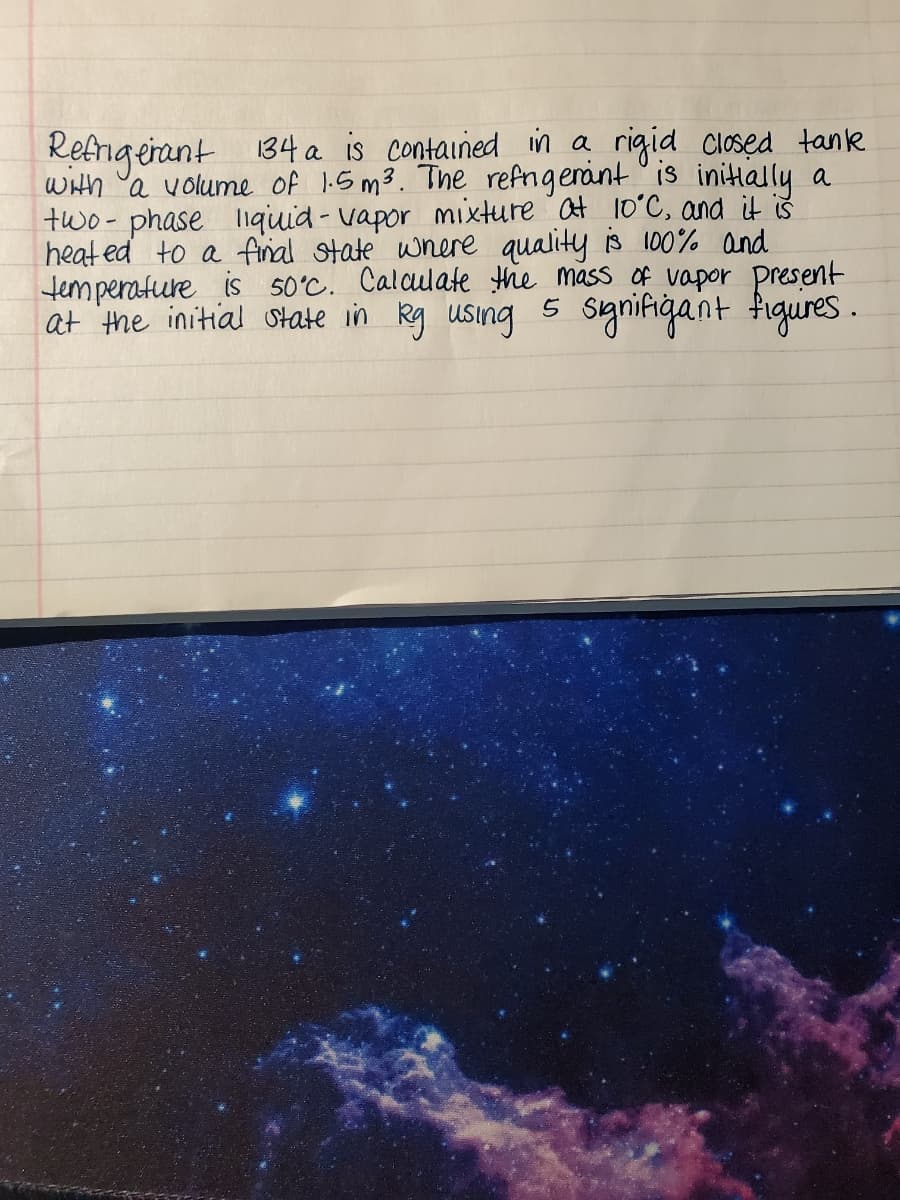 Refrigerant 134 a is contained in a rigid closed tank
with a volume of 1.5 m³. The refrigerant is initially a
two-phase liquid-vapor mixture at 10°C, and it is
heated to a final state where quality is 100% and
temperature is 50°C. Calculate the mass of vapor present
at the initial state in kg using 5 signifigant figures.